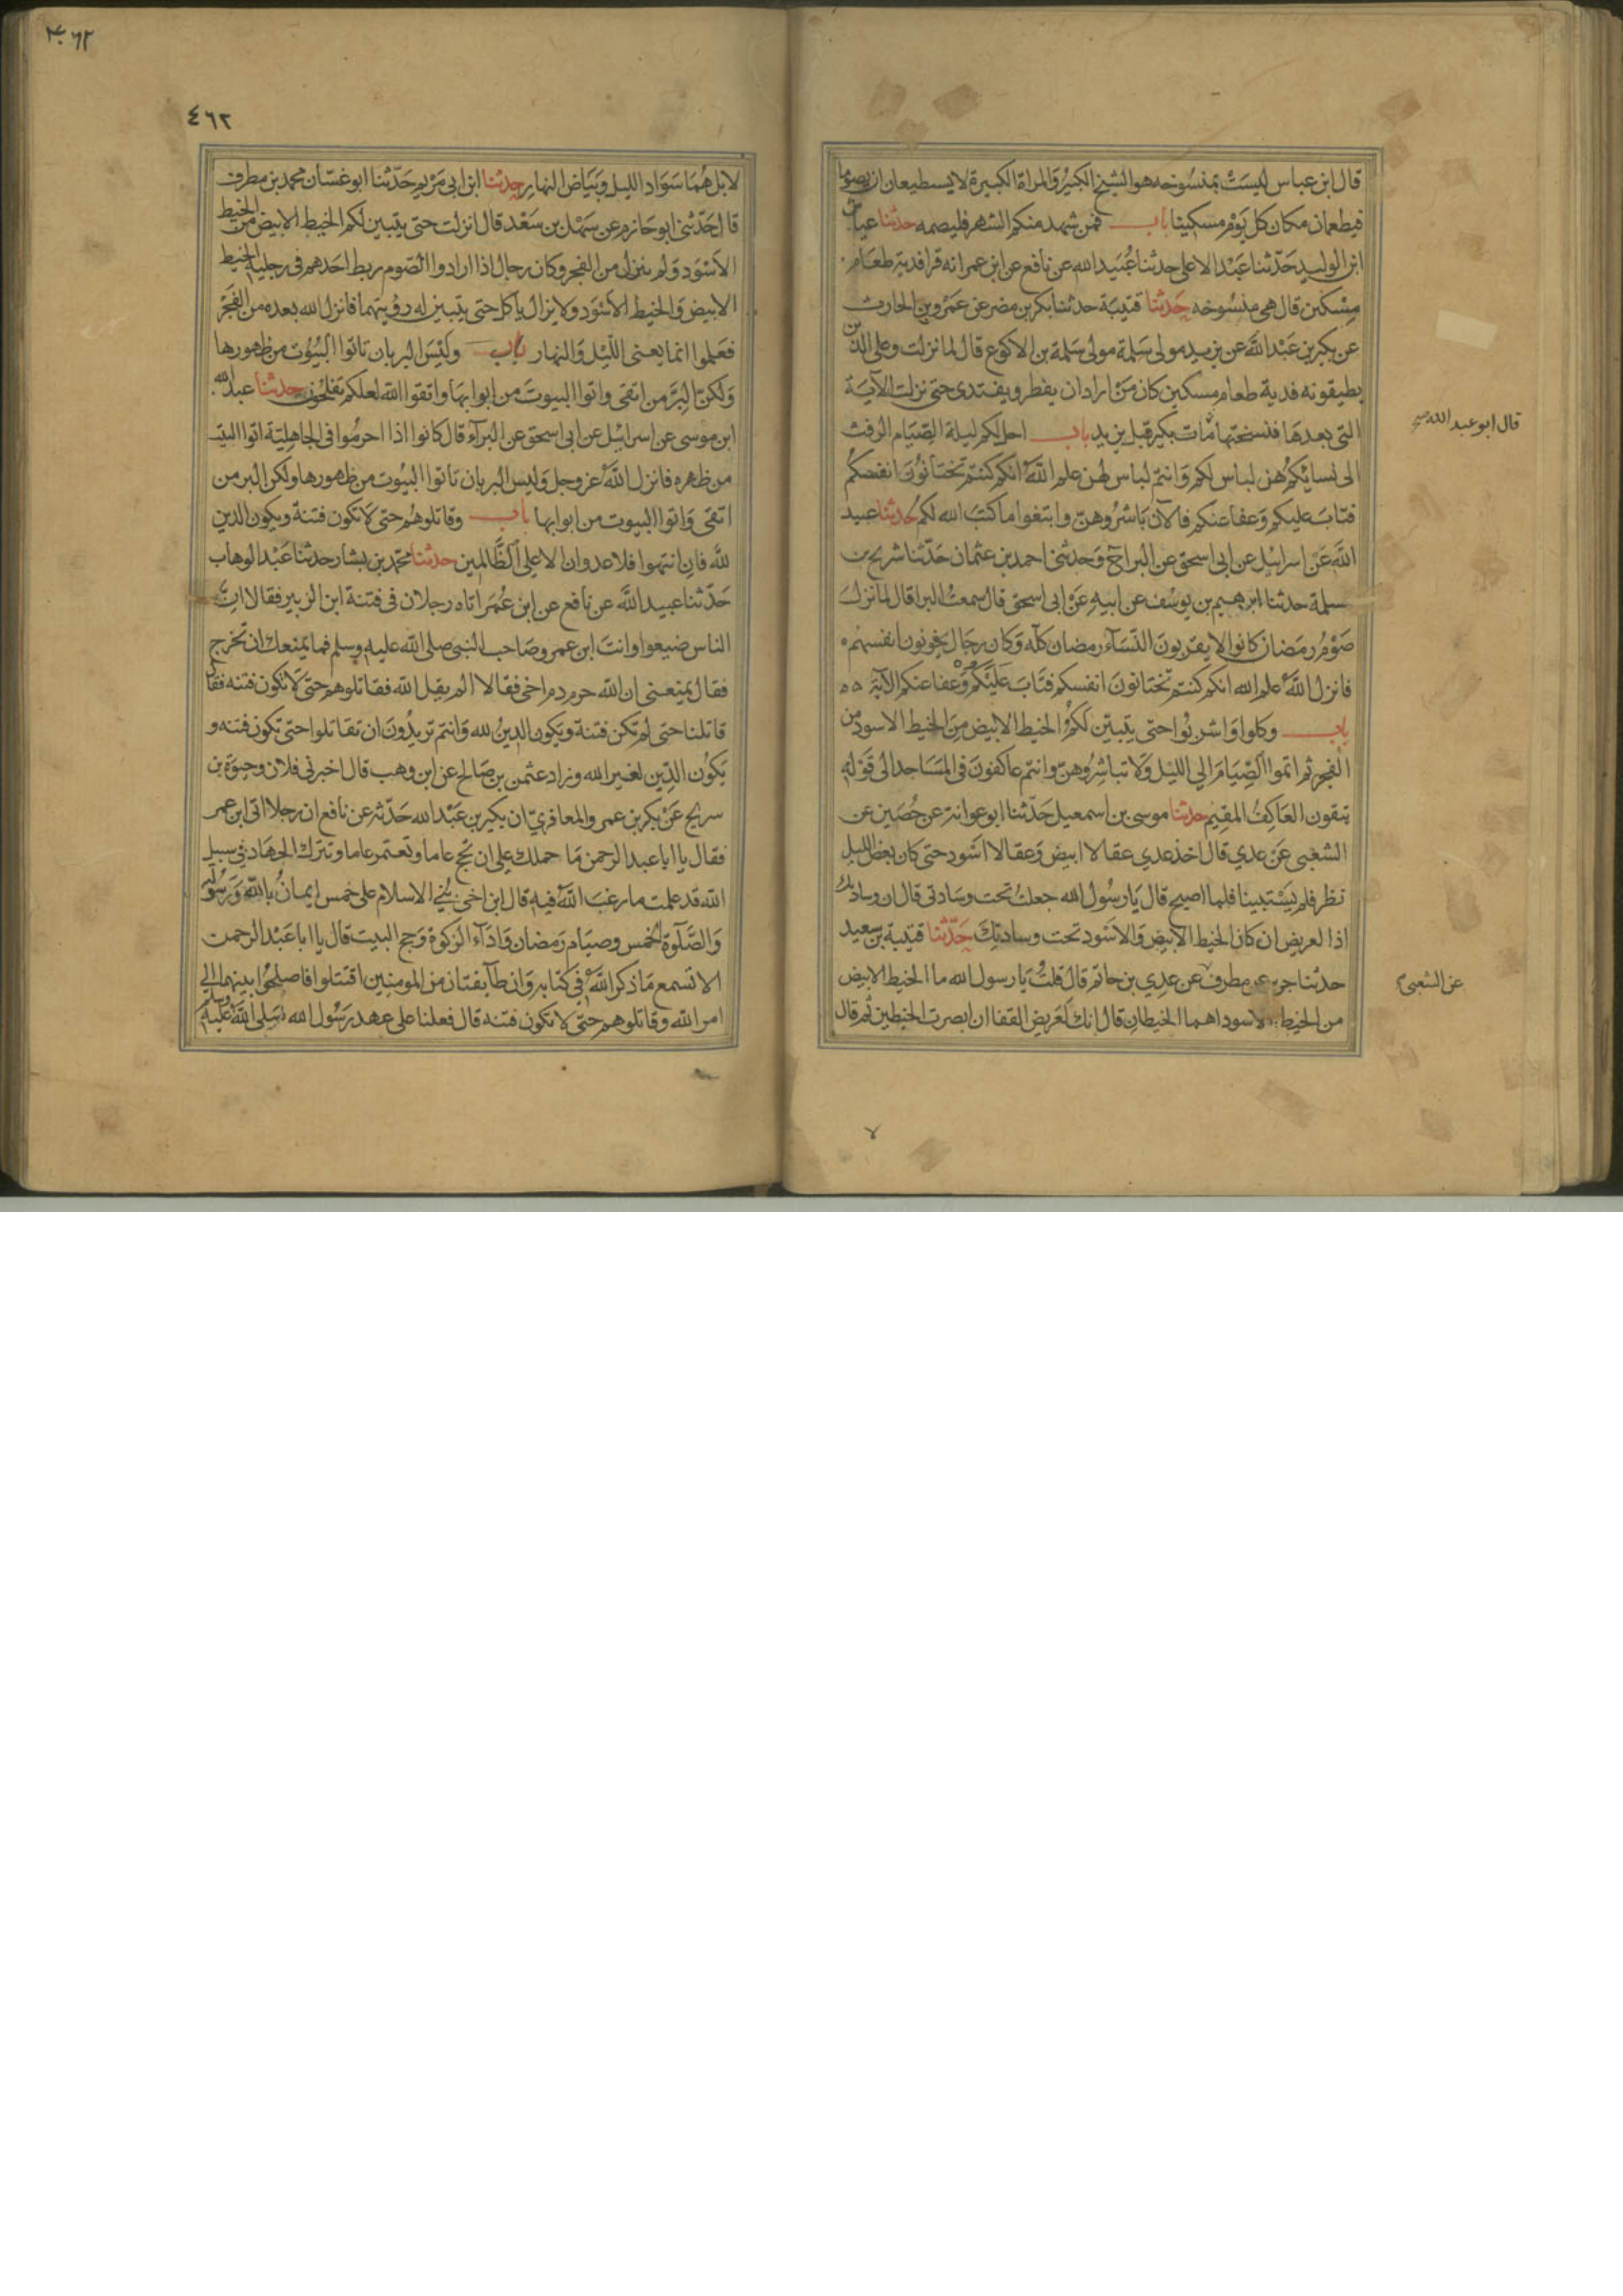 قال ابن عباس ليست بمنسوخه هو الشيخ الكبير والمراة الكبيرة لا يستطيعان ان يصوما
فيطعمان مكان كل يوم مسكينا باب فمن شهد منكم الشهر فليصمه حدثنا عياش
ابن الوليد حدثنا عبد الاعلى حدثنا عبيد الله عن نافع عن ابن عمر انه قرا فدية طعام
مسكين قال هي منسوخه حدثنا قتيبة حدثنا بكر بن مضر عن عمرو بن الحارث
عن بكير بن عبد الله عن يزيد مولى سلمة مولى سلمة بن الاكوع قال لما نزلت وعلى الذين
يطيقونه فدية طعام مسكين كان من اراد ان يفطر ويفتدى حتى نزلت الآية
التي بعدها فنسختها مات بكير قبل يزيد باب احل لكم ليلة الصيام الرفث
قال ابو عبد الله
الى نسائكم هن لباس لكم وانتم لباس لهن علم الله انكم كنتم تختانون انفسكم
فتاب عليكم وعفا عنكم فالآن باشروهن وابتغوا ما كتب الله لكم حدثنا عبيد
الله عن اسرائيل عن ابى اسحق عن البراء ح وحدثني احمد بن عثمان حدثنا شريح بن
سلمة حدثنا ابرهيم بن يوسف عن ابيه عن ابى اسحق قال سمعت البرا قال لما نزل
صوم رمضان كانوا لا يقربون النساء رمضان كله وكان رجال يخونون انفسهم
فانزل الله علم الله انكم كنتم تختانون انفسكم فتاب عليكم وعفا عنكم الآية
باب وكلوا واشربوا حتى يتبين لكم الخيط الابيض من الخيط الاسود من
الفجر ثم اتموا الصيام الى الليل ولا تباشروهن وانتم عاكفون فى المساجد الى قوله
يتقون العاكف المقيم حدثنا موسى بن اسمعيل حدثنا ابو عوانة عن حصين عن
الشعبى عن عدي قال اخذ عدي عقالا ابيض وعقالا اسود حتى كان بعض الليل
نظر فلم يستبينا فلما اصبح قال يا رسول الله جعلت تحت وسادتى قال ان وسادك
اذا لعريض ان كان الخيط الابيض والاسود تحت وسادتك حدثنا قتيبة بن سعيد
حدثنا جرير عن مطرف عن عدي بن حاتم قال قلت يا رسول الله ما الخيط الابيض
عن الشعبى
من الخيط الاسود اهما الخيطان قال انك لعريض القفا ان ابصرت الخيطين ثم قال
٤٦٢
لا بل هما سواد الليل وبياض النهار حدثنا ابن ابى مريم حدثنا ابو غسان محمد بن مطرف
قال حدثني ابو حازم عن سهل بن سعد قال انزلت حتى يتبين لكم الخيط الابيض من الخيط
الاسود ولم ينزل من الفجر وكان رجال اذا ارادوا الصوم ربط احدهم فى رجليه الخيط
الابيض والخيط الاسود ولا يزال ياكل حتى يتبين له رؤيتهما فانزل الله بعده من الفجر
فعلموا انما يعنى الليل والنهار باب وليس البر بان تاتوا البيوت من ظهورها
ولكن البر من اتقى واتوا البيوت من ابوابها واتقوا الله لعلكم تفلحون حدثنا عبيد الله
ابن موسى عن اسرائيل عن ابى اسحق عن البراء قال كانوا اذا احرموا فى الجاهلية اتوا البيت
من ظهره فانزل الله عز وجل وليس البر بان تاتوا البيوت من ظهورها ولكن البر من
اتقى واتوا البيوت من ابوابها باب وقاتلوهم حتى لا تكون فتنة ويكون الدين
لله فان انتهوا فلا عدوان الا على الظالمين حدثنا محمد بن بشار حدثنا عبد الوهاب
حدثنا عبيد الله عن نافع عن ابن عمر اتاه رجلان فى فتنة ابن الزبير فقالا ان
الناس ضيعوا وانت ابن عمر وصاحب النبى صلى الله عليه وسلم فما يمنعك ان تخرج
فقال يمنعنى ان الله حرم دم اخى فقالا الم يقل الله فقاتلوهم حتى لا تكون فتنه فقال
قاتلنا حتى لم تكن فتنة ويكون الدين لله وانتم تريدون ان تقاتلوا حتى تكون فتنه و
يكون الدين لغير الله وزاد عثمن بن صالح عن ابن وهب قال اخبرنى فلان وحيوة بن
سريح عن بكر بن عمرو المعافري ان بكير بن عبد الله حدثه عن نافع ان رجلا اتى ابن عمر
فقال يا ابا عبد الرحمن ما حملك على ان تحج عاما وتعتمر عاما وتترك الجهاد فى سبيل
الله قد علمت ما رغب الله فيه قال ابن اخي بُني الاسلام على خمس ايمان بالله ورسوله
والصلوة الخمس وصيام رمضان واداء الزكوة وحج البيت قال يا ابا عبد الرحمن
الا تسمع ما ذكر الله فى كتابه وان طآيفتان من المومنين اقتتلوا فاصلحوا بينهما الى
امر الله وقاتلوهم حتى لا تكون فتنه قال فعلنا على عهد رسول الله صلى الله عليه وسلم